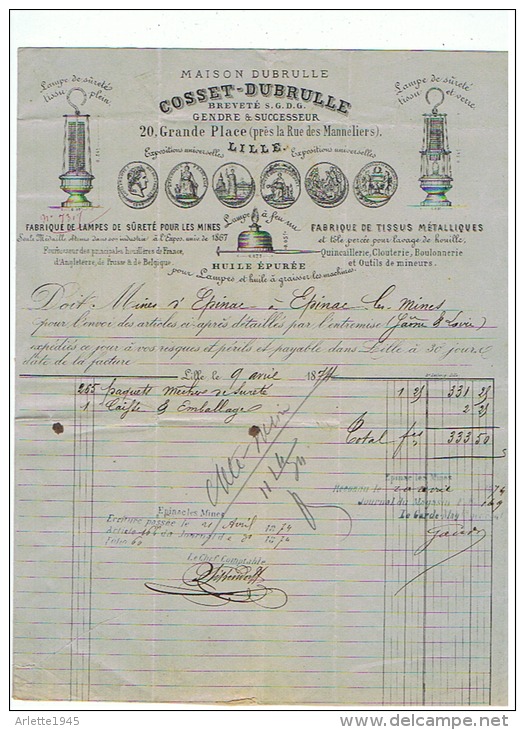 MAISON DUBRULLE
COSSET-DUBRULLE
BREVETÉ S.G.D.G.
GENDRE & SUCCESSEUR
20, Grande Place (près la Rue des Manneliers).
LILLE.
Lampe de sûreté
tissu plein
Lampe de sûreté
tissu et verre
Expositions universelles
Expositions universelles
N° 7307
FABRIQUE DE LAMPES DE SÛRETÉ POUR LES MINES
Seule Médaille obtenue dans son industrie à l'Expos. univ. de 1867
Fournisseur des principales houillères de France,
d'Angleterre, de Prusse & de Belgique.
Lampe à feu nu
HUILE ÉPURÉE
pour Lampes et huile à graisser les machines.
FABRIQUE DE TISSUS MÉTALLIQUES
et tôle percée pour lavage de houille,
Quincaillerie, Clouterie, Boulonnerie
et Outils de mineurs.
Doit Mines d'Epinac à Epinac les Mines
pour l'envoi des articles ci-après détaillés par l'entremise
expédiés ce jour à vos risques et périls et payable dans Lille à 30 jours
date de la facture
Lille le 9 avril 1874
265 paquets de sûreté 1 25 331 25
1 Caisse & Emballage 2 25
Total frs 333 50
Epinac les Mines
Journal du Magasin
Le Garde-Mag
Epinac les Mines
Ecriture passée le 20 Avril 1874
Folio 60
Le Chef Comptable
Arlette1945
www.delcampe.net